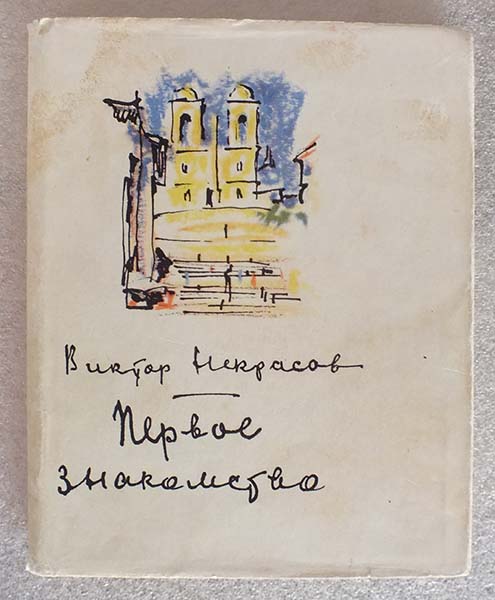 Виктор Некрасов
Первое
знакомство